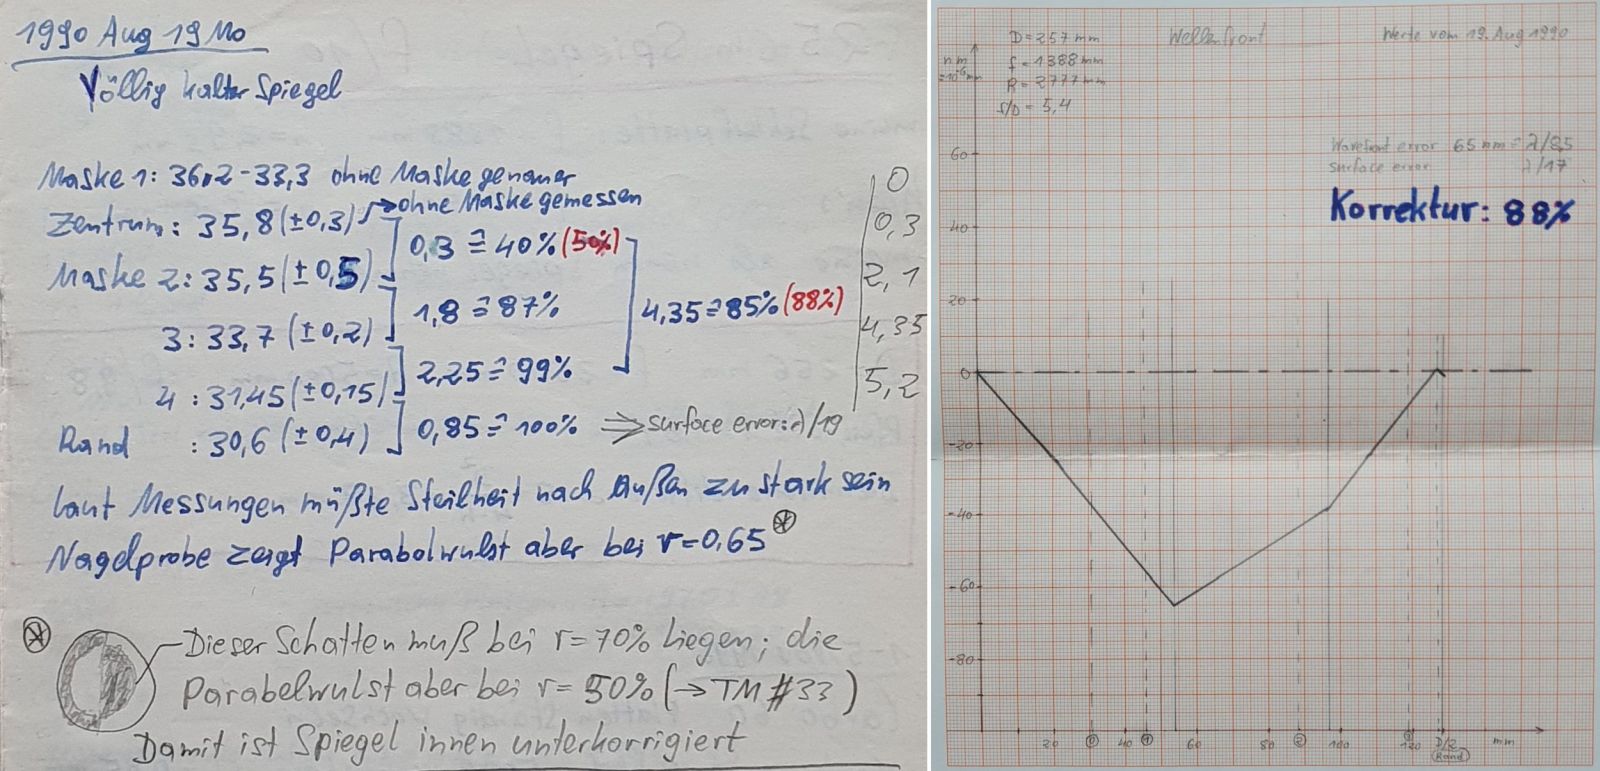 1990 Aug 19 Mo
Völlig kalter Spiegel
Maske 1: 36,2-33,3 ohne Maske genauer
Zentrum: 35,8 (±0,3) → ohne Maske gemessen
0,3 ≙ 40% (50%)
Maske 2: 35,5 (±0,5)
1,8 ≙ 87%
4,35 ≙ 85% (88%)
3: 33,7 (±0,2)
2,25 ≙ 99%
4: 31,45 (±0,15)
0,85 ≙ 100% ⇒ surface error: λ/19
Rand : 30,6 (±0,4)
0
0,3
2,1
4,35
5,2
laut Messungen müßte Steilheit nach Außen zu stark sein
Nagelprobe zeigt Parabolwulst aber bei r=0,65 *
* Dieser Schatten muß bei r=70% liegen; die
Parabelwulst aber bei r=50% (→ TM #33)
Damit ist Spiegel innen unterkorrigiert
D=257 mm
f=1388 mm
R=2777 mm
f/D=5,4
Wellenfront
Werte vom 19. Aug 1990
nm
=10⁻⁶ mm
Wavefront error 65 nm = λ/8,5
surface error λ/17
Korrektur: 88%
60
40
20
0
-20
-40
-60
-80
20 40 60 80 100 120 D/2 mm
Rand